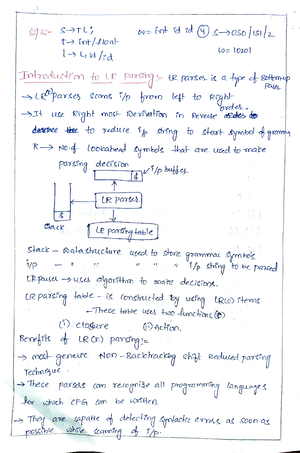 Eg:- S→TL;   w= int id id ④ S→0S0/1S1/2
T→ int/float   w=10201
L→ L,id/id
Introduction to LR parsing:- LR parser is a type of Bottom up
→ LR(k) parsers scans i/p from left to Right
→ It use Right most Derivation in Reverse order.
to reduce i/p string to start symbol of grammar
K → No. of lookahead symbols that are used to make
parsing decision
i/p buffer
$
LR parser
$
Stack
LR parsing table
Stack - Datastructure used to store grammar symbols
i/p - " " " " " i/p string to be parsed
LR parser → uses algorithm to make decisions.
LR parsing table - is constructed by using LR(0) items
- These table uses two functions
① closure ② Action.
Benefits of LR(k) parsing:-
→ most generic Non-Backtracking shift Reduced parsing
Technique.
→ These parsers can recognize all programming languages
for which CFG can be written.
→ They are capable of detecting syntactic errors as soon as
possible while scanning of i/p.